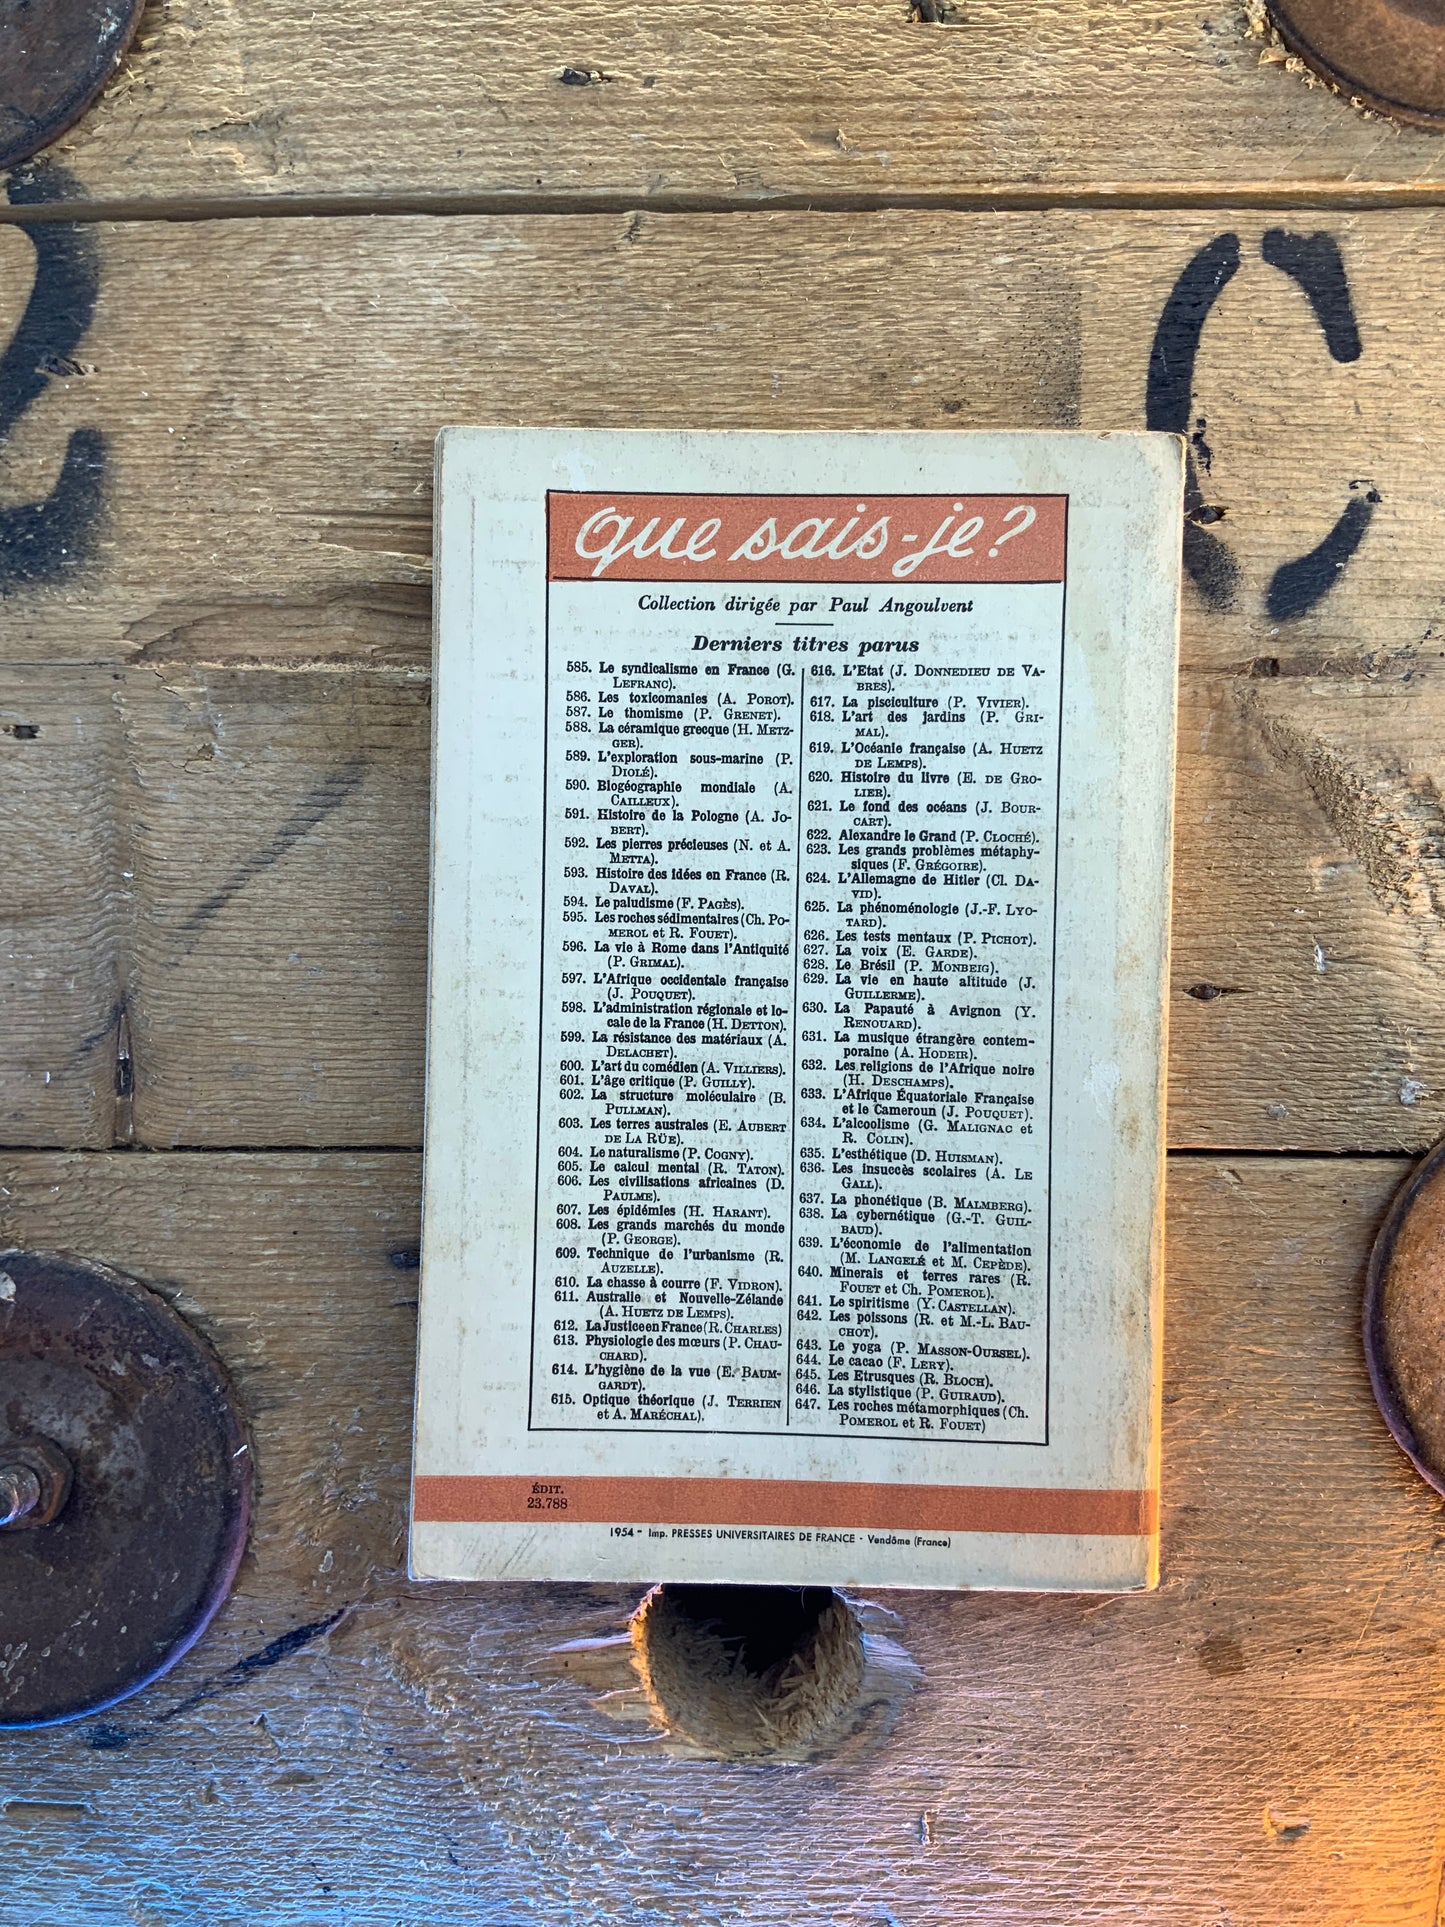 que sais-je?
Collection dirigée par Paul Angoulvent
Derniers titres parus
585. Le syndicalisme en France (G.
LEFRANC).
586. Les toxicomanies (A. POROT).
587. Le thomisme (P. GRENET).
588. La céramique grecque (H. METZ-
GER).
589. L'exploration sous-marine (P.
DIOLÉ).
590. Biogéographie mondiale (A.
CAILLEUX).
591. Histoire de la Pologne (A. JO-
BERT).
592. Les pierres précieuses (N. et A.
METTA).
593. Histoire des idées en France (R.
DAVAL).
594. Le paludisme (F. PAGÈS).
595. Les roches sédimentaires (Ch. PO-
MEROL et R. FOUET).
596. La vie à Rome dans l'Antiquité
(P. GRIMAL).
597. L'Afrique occidentale française
(J. POUQUET).
598. L'administration régionale et lo-
cale de la France (H. DETTON).
599. La résistance des matériaux (A.
DELACHET).
600. L'art du comédien (A. VILLIERS).
601. L'âge critique (P. GUILLY).
602. La structure moléculaire (B.
PULLMAN).
603. Les terres australes (E. AUBERT
DE LA RÜE).
604. Le naturalisme (P. COGNY).
605. Le calcul mental (R. TATON).
606. Les civilisations africaines (D.
PAULME).
607. Les épidémies (H. HARANT).
608. Les grands marchés du monde
(P. GEORGE).
609. Technique de l'urbanisme (R.
AUZELLE).
610. La chasse à courre (F. VIDRON).
611. Australie et Nouvelle-Zélande
(A. HUETZ DE LEMPS).
612. La Justice en France (R. CHARLES)
613. Physiologie des mœurs (P. CHAU-
CHARD).
614. L'hygiène de la vue (E. BAUM-
GARDT).
615. Optique théorique (J. TERRIEN
et A. MARÉCHAL).
616. L'Etat (J. DONNEDIEU DE VA-
BRES).
617. La pisciculture (P. VIVIER).
618. L'art des jardins (P. GRI-
MAL).
619. L'Océanie française (A. HUETZ
DE LEMPS).
620. Histoire du livre (E. DE GRO-
LIER).
621. Le fond des océans (J. BOUR-
CART).
622. Alexandre le Grand (P. CLOCHÉ).
623. Les grands problèmes métaphy-
siques (F. GRÉGOIRE).
624. L'Allemagne de Hitler (Cl. DA-
VID).
625. La phénoménologie (J.-F. LYO-
TARD).
626. Les tests mentaux (P. PICHOT).
627. La voix (E. GARDE).
628. Le Brésil (P. MONBEIG).
629. La vie en haute altitude (J.
GUILLERME).
630. La Papauté à Avignon (Y.
RENOUARD).
631. La musique étrangère contem-
poraine (A. HODEIR).
632. Les religions de l'Afrique noire
(H. DESCHAMPS).
633. L'Afrique Équatoriale Française
et le Cameroun (J. POUQUET).
634. L'alcoolisme (G. MALIGNAC et
R. COLIN).
635. L'esthétique (D. HUISMAN).
636. Les insuccès scolaires (A. LE
GALL).
637. La phonétique (B. MALMBERG).
638. La cybernétique (G.-T. GUIL-
BAUD).
639. L'économie de l'alimentation
(M. LANGELÉ et M. CEPÈDE).
640. Minerais et terres rares (R.
FOUET et Ch. POMEROL).
641. Le spiritisme (Y. CASTELLAN).
642. Les poissons (R. et M.-L. BAU-
CHOT).
643. Le yoga (P. MASSON-OURSEL).
644. Le cacao (F. LERY).
645. Les Etrusques (R. BLOCH).
646. La stylistique (P. GUIRAUD).
647. Les roches métamorphiques (Ch.
POMEROL et R. FOUET)
ÉDIT.
23.788
1954 - Imp. PRESSES UNIVERSITAIRES DE FRANCE - Vendôme (France)
C